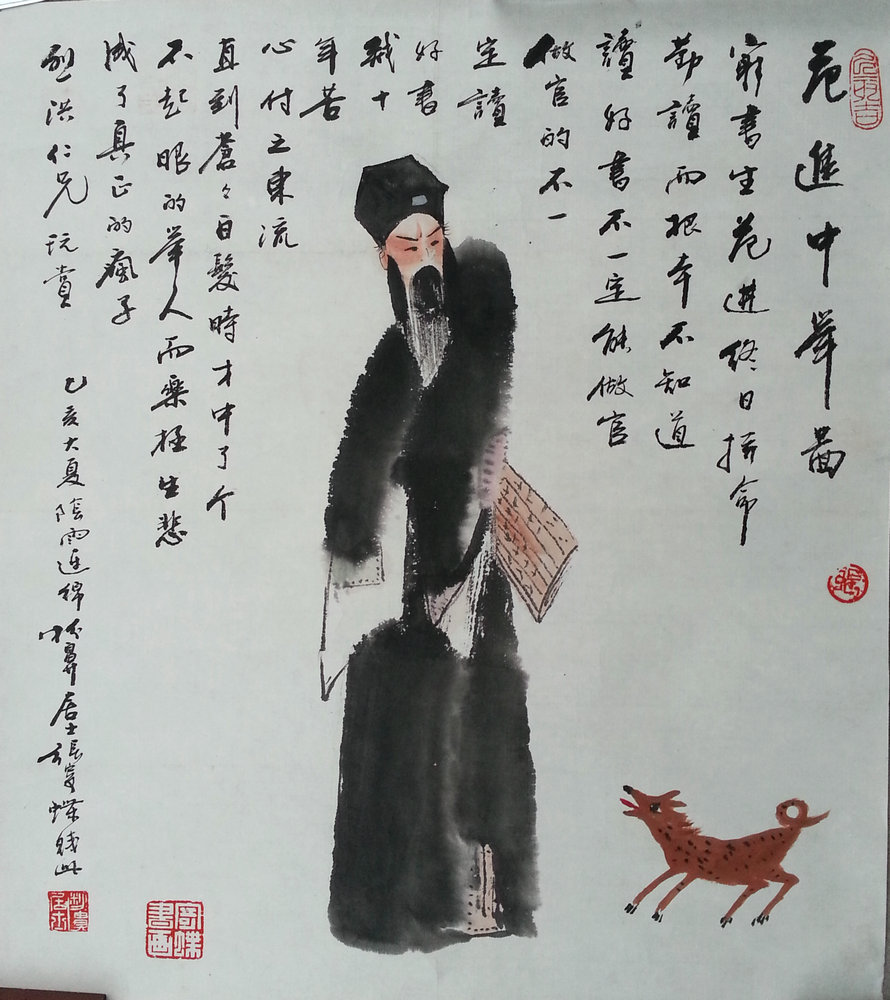 范進中舉圖
窮書生范進終日拼命
勤讀而根本不知道
讀好書不一定能做官
做官的不一
定讀
好書
十
年苦
心付之東流
直到蒼々白髮時才中了个
不起眼的举人而樂極生悲
成了真正的瘋子
洪仁兄玩賞
乙亥大夏陰雨連綿
居士張寶蝶戲此
寶蝶書画